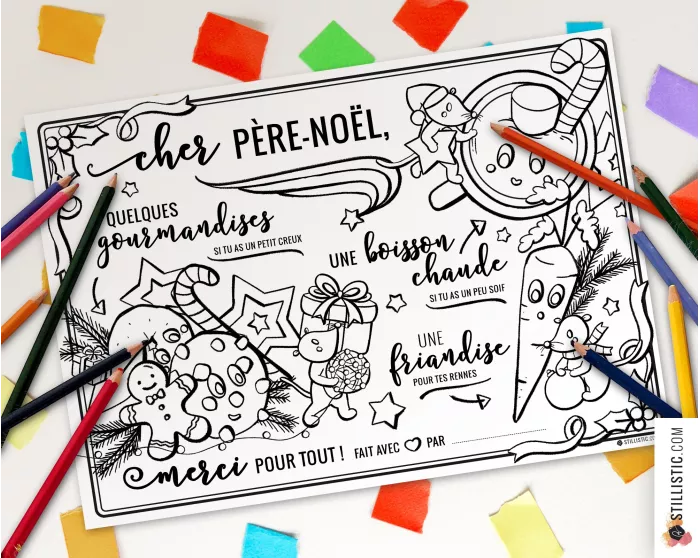 cher PÈRE-NOËL,
QUELQUES
gourmandises
SI TU AS UN PETIT CREUX
UNE boisson
chaude
SI TU AS UN PEU SOIF
UNE
friandise
POUR TES RENNES
merci POUR TOUT ! FAIT AVEC ♡ PAR ........................
STILLISTIC.COM